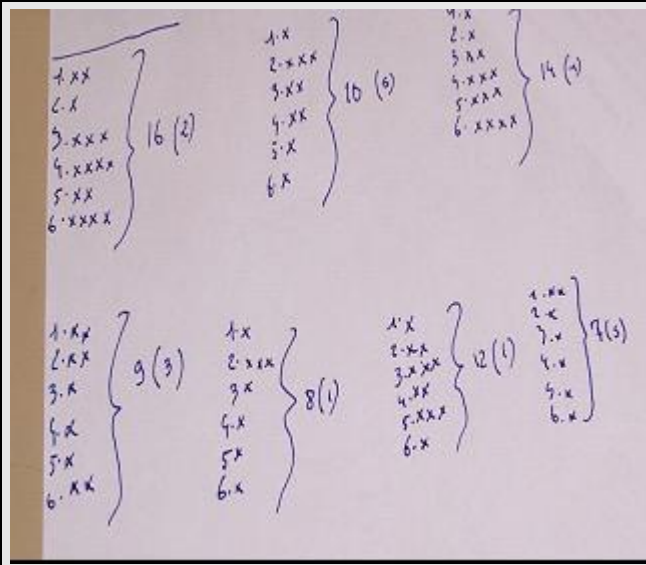 1. xx
2. x
3. xxx
4. xxxx
5. xx
6. xxxx
16 (2)
1. x
2. xxx
3. xx
4. xx
5. x
6. x
10 (6)
1. x
2. x
3 xx
4. xxx
5. xxx
6. xxxx
14 (4)
1. xx
2. xx
3. x
4. x
5. x
6. xx
9 (3)
1. x
2. xxx
3 x
4. x
5 x
6. x
8 (1)
1. x
2. xx
3. xxx
4. xx
5. xxx
6. x
12 (1)
1. xx
2. x
3. x
4. x
5. x
6. x
7 (5)